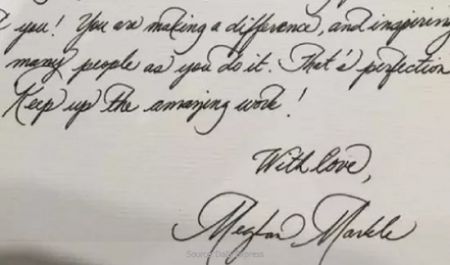 you! You are making a difference, and inspiring
many people as you do it. That's perfection
Keep up the amazing work!
With love,
Meghan Markle
Source: Daily Express